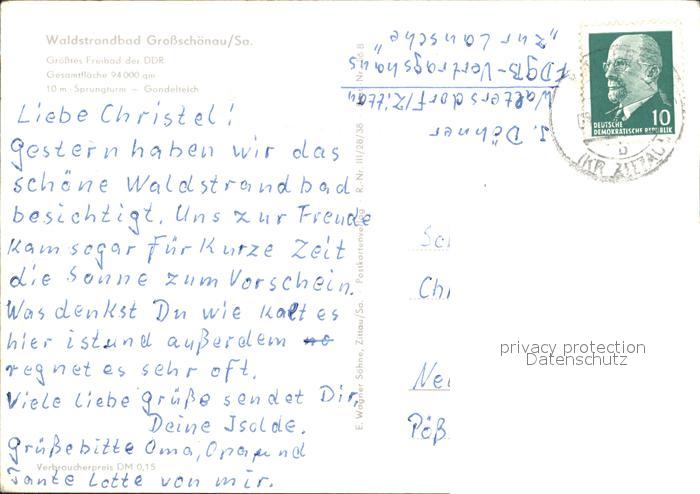 Waldstrandbad Großschönau/Sa.
Größtes Freibad der DDR
Gesamtfläche 94 000 qm
10 m-Sprungturm — Gondelteich
Liebe Christel!
Gestern haben wir das
schöne Waldstrandbad
besichtigt. Uns zur Freude
kam sogar für kurze Zeit
die Sonne zum Vorschein.
Was denkst Du wie kalt es
hier ist und außerdem
regnet es sehr oft.
Viele liebe Grüße sendet Dir,
Deine Isolde.
Grüße bitte Oma, Opa und
Tante Lotte von mir.
Verbraucherpreis DM 0,15
E. Wagner Söhne, Zittau/Sa. Postkartenverlag R. Nr. III/28/38
J. Döhner
Waltersdorf/Zittau
FDGB-Vertragshaus
"Zur Lausche"
DEUTSCHE
DEMOKRATISCHE REPUBLIK
10
b
(KR ZITTAU)
Sch
Chr
Neu
Pöß
privacy protection
Datenschutz